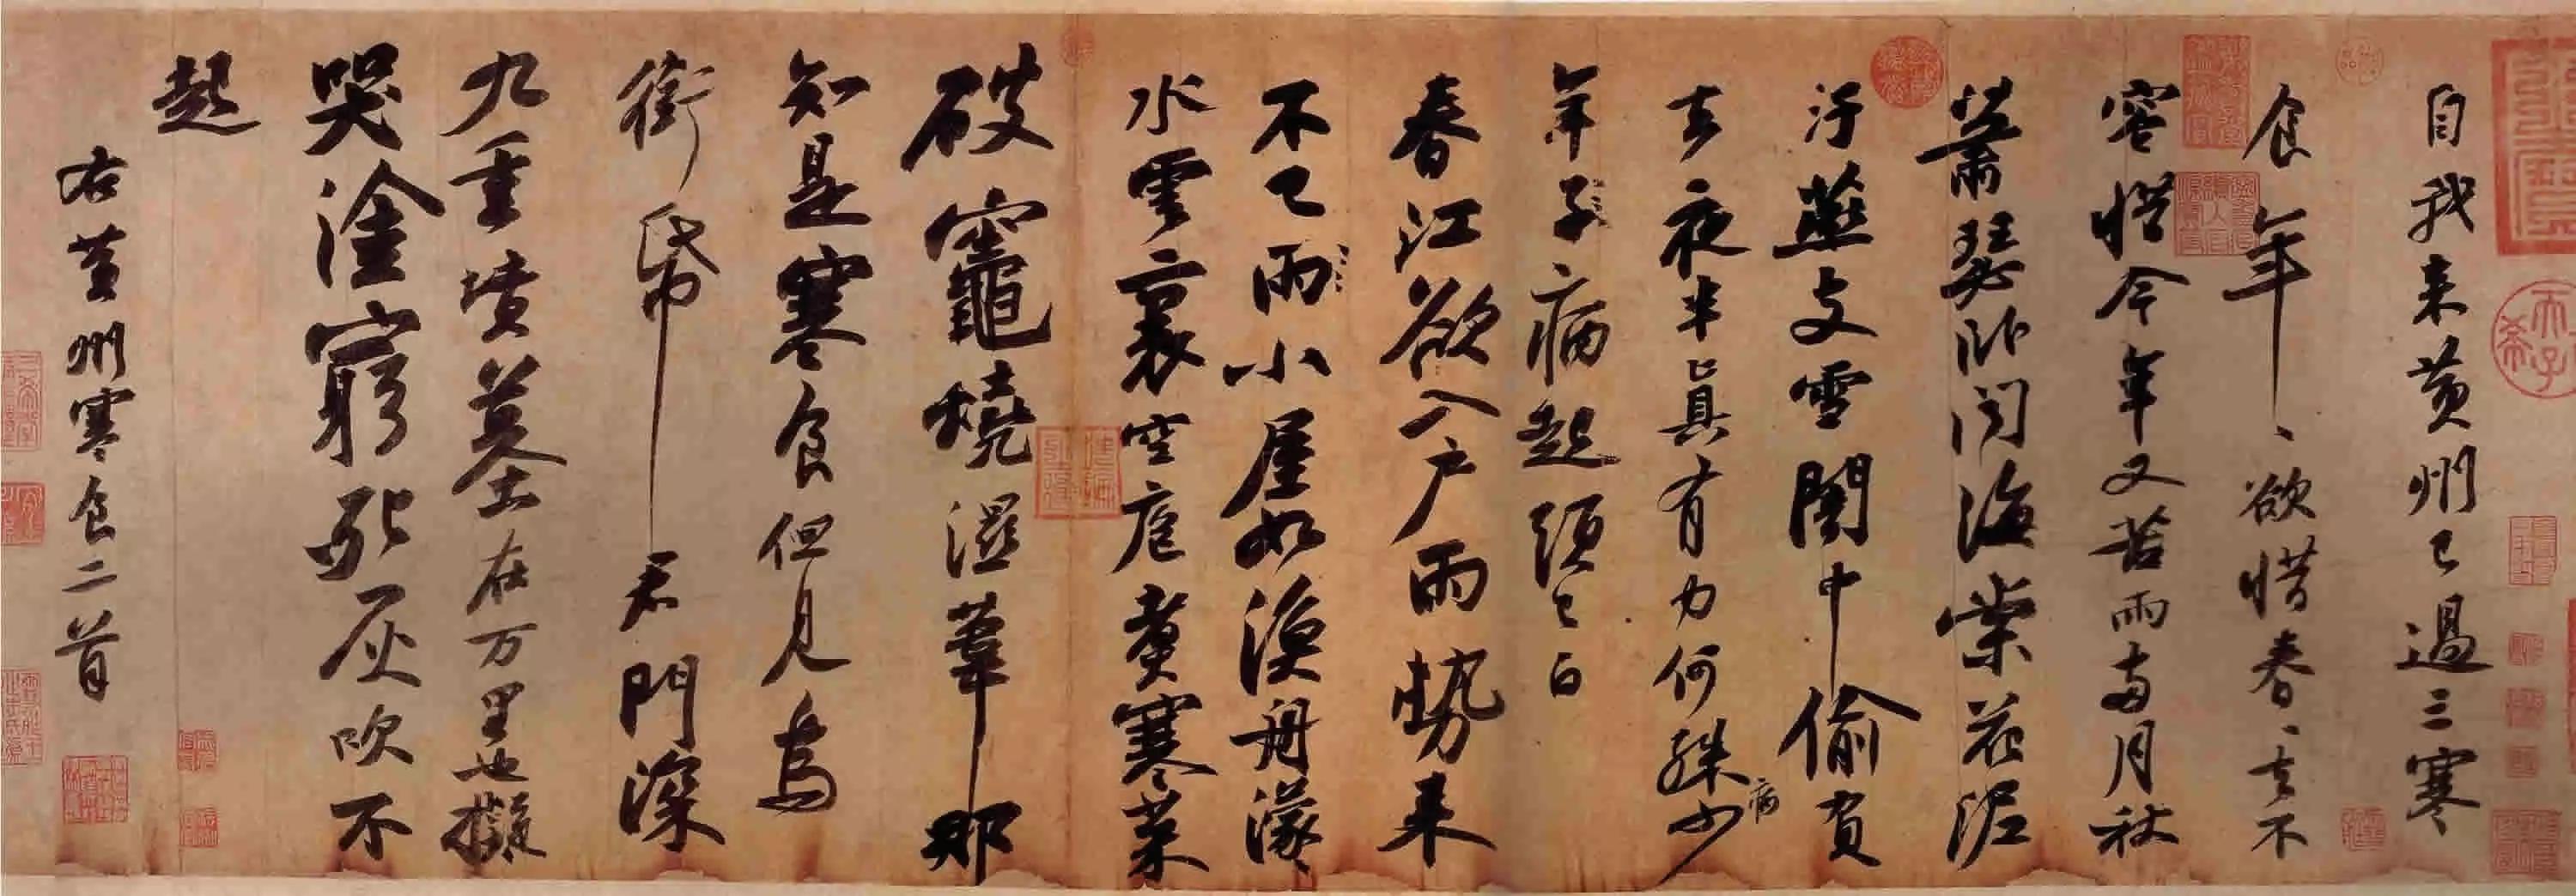 自我来黄州已過三寒
食年、欲惜春、去不
容惜今年又苦雨兩月秋
蕭瑟卧聞海棠花泥
汙燕支雪闇中偷負
去夜半真有力何殊少病
年子病起頭已白
春江欲入户雨勢来
不已雨小屋如漁舟濛、
水雲裏空庖煮寒菜
破竈燒濕葦那
知是寒食但見烏
銜帋君門深
九重墳墓在万里也擬
哭塗窮死灰吹不
起
右黄州寒食二首